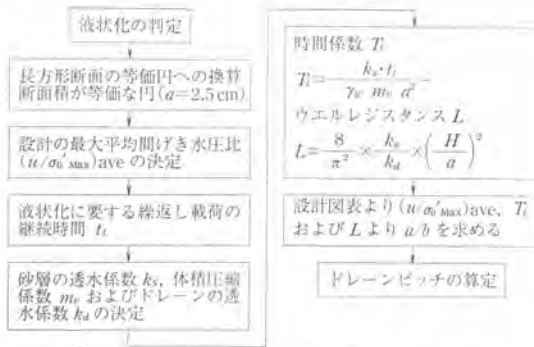 液状化の判定
長方形断面の等価円への換算
断面積が等価な円(a=2.5cm)
設計の最大平均間げき水圧比
(u/σ₀′Max)aveの決定
液状化に要する繰返し載荷の
継続時間 tL
砂層の透水係数 ks, 体積圧縮
係数 mv およびドレーンの透
水係数 kd の決定
時間係数 Tl
Tl = ks・tl / γw mv a²
ウエルレジスタンス L
L = 8/π² × ks/kd × (H/a)²
設計図表より (u/σ₀′Max)ave, Tl
および L より a/b を求める
ドレーンピッチの算定